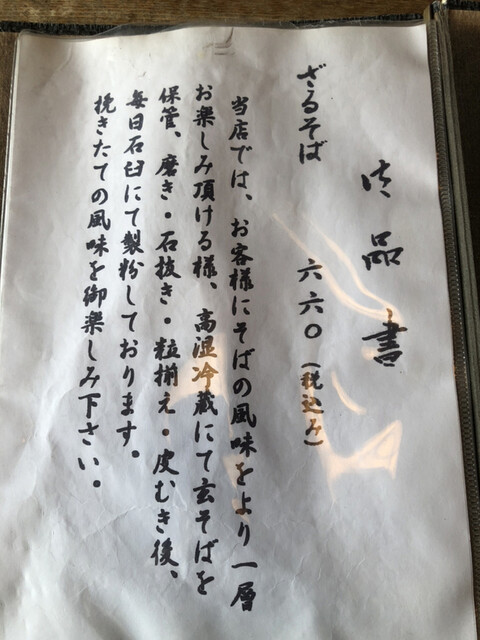 御品書
ざるそば 六六〇(税込み)
当店では、お客様にそばの風味をより一層
お楽しみ頂ける様、高湿冷蔵にて玄そばを
保管、磨き・石抜き・粒揃え・皮むき後、
毎日石臼にて製粉しております。
挽きたての風味を御楽しみ下さい。